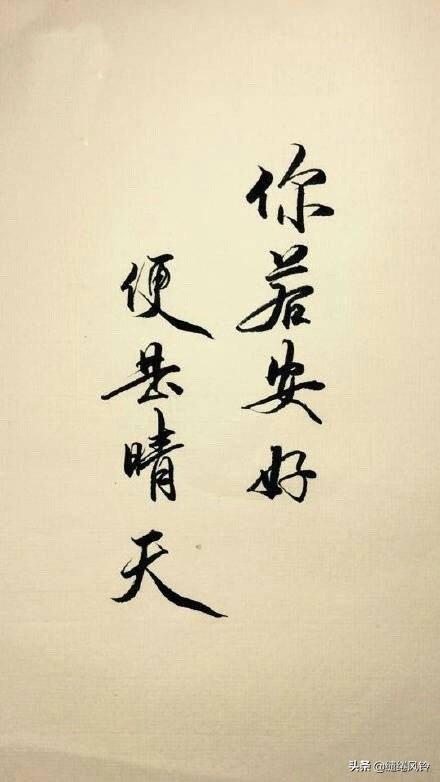 你若安好
便是晴天
头条 @缱绻风铃